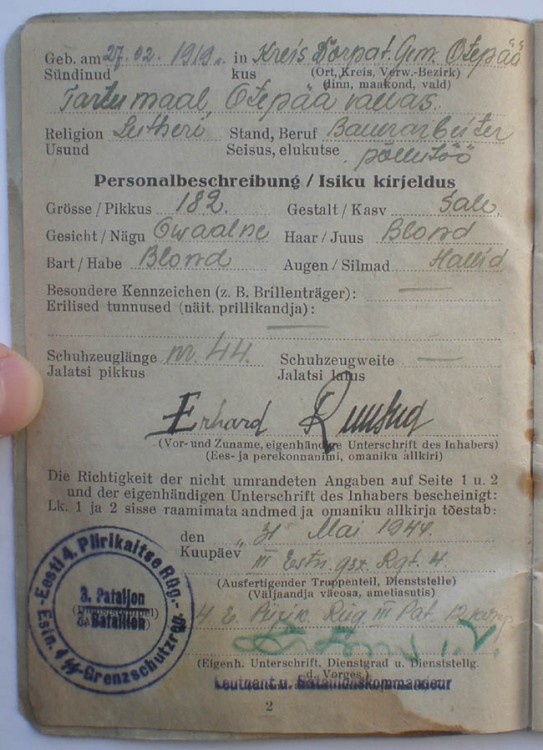 Geb. am 27.02.1919. in Kreis Dorpat. Gem. Otepää
Sündinud kus (Ort, Kreis, Verw.-Bezirk)
(linn, maakond, vald)
Tartumaal, Otepää vallas.
Religion Lutheri Stand, Beruf Bauerarbeiter
Usund Seisus, elukutse põllutöö
Personalbeschreibung / Isiku kirjeldus
Grösse / Pikkus 182. Gestalt / Kasv Sale.
Gesicht / Nägu Owaalne Haar / Juus Blond
Bart / Habe Blond Augen / Silmad Hallid
Besondere Kennzeichen (z. B. Brillenträger): —
Erilised tunnused (näit. prillikandja): —
Schuhzeuglänge nr. 44. Schuhzeugweite —
Jalatsi pikkus Jalatsi laius
Erhard
(Vor- und Zuname, eigenhändige Unterschrift des Inhabers)
(Ees- ja perekonnanimi, omaniku allkiri)
Die Richtigkeit der nicht umrandeten Angaben auf Seite 1 u. 2
und der eigenhändigen Unterschrift des Inhabers bescheinigt:
Lk. 1 ja 2 sisse raamimata andmed ja omaniku allkirja tõestab:
den 31 Mai 1944.
Kuupäev III Estn. gsx. Rgt. 4
(Ausfertigender Truppenteil, Dienststelle)
(Väljaandja väeosa, ametiasutis)
4 E. Piirik. Rüg III Pat
Eesti 4. Piirikaitse Rüg.
3. Pataljon
3. Bataillon
Estn. 4 SS-Grenzschutzreg.
(Eigenh. Unterschrift, Dienstgrad u. Dienststellg.
d. Vorges.)
Leutnant u. Bataillonskommandeur
2